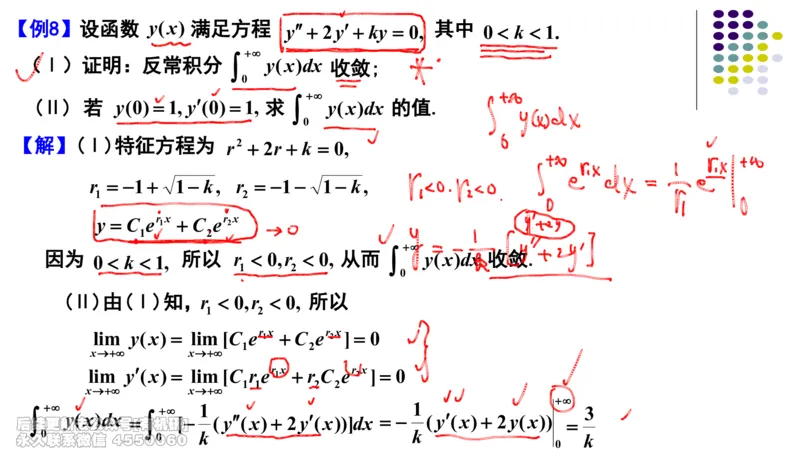 【例8】设函数 y(x) 满足方程 y″ + 2y′ + ky = 0, 其中 0 < k < 1.
(Ⅰ) 证明：反常积分 ∫₀^{+∞} y(x)dx 收敛；
(Ⅱ) 若 y(0) = 1, y′(0) = 1, 求 ∫₀^{+∞} y(x)dx 的值.
∫₀^{+∞} y(x)dx
【解】(Ⅰ) 特征方程为 r² + 2r + k = 0,
r₁ = −1 + √(1 − k), r₂ = −1 − √(1 − k),
r₁<0. r₂<0. ∫₀^{+∞} e^{r₁x} dx = 1/r₁ e^{r₁x} |₀^{+∞}
y = C₁e^{r₁x} + C₂e^{r₂x} → 0
y′+2y
y = −1/k [y″ + 2y′]
因为 0 < k < 1, 所以 r₁ < 0, r₂ < 0, 从而 ∫₀^{+∞} y(x)dx 收敛.
(Ⅱ) 由(Ⅰ)知, r₁ < 0, r₂ < 0, 所以
lim_{x→+∞} y(x) = lim_{x→+∞} [C₁e^{r₁x} + C₂e^{r₂x}] = 0
lim_{x→+∞} y′(x) = lim_{x→+∞} [C₁r₁e^{r₁x} + r₂C₂e^{r₂x}] = 0
∫₀^{+∞} y(x)dx = ∫₀^{+∞} [−1/k (y″(x) + 2y′(x))]dx = −1/k (y′(x) + 2y(x)) |₀^{+∞} = 3/k
永久联系微信 4550060